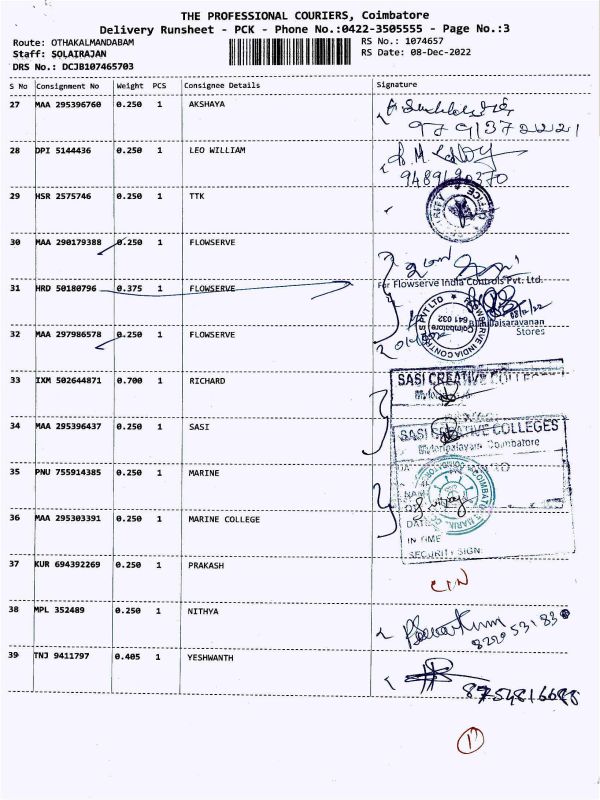 THE PROFESSIONAL COURIERS, Coimbatore
Delivery Runsheet - PCK - Phone No.:0422-3505555 - Page No.:3
Route: OTHAKALMANDABAM
RS No.: 1074657
Staff: SOLAIRAJAN
RS Date: 08-Dec-2022
DRS No.: DCJB107465703
S No Consignment No Weight PCS Consignee Details Signature
27 MAA 295396760 0.250 1 AKSHAYA
9791372221
28 DPI 5144436 0.250 1 LEO WILLIAM
29 HSR 2575746 0.250 1 TTK
30 MAA 290179388 0.250 1 FLOWSERVE
For Flowserve India Controls Pvt. Ltd.
31 HRD 50180796 0.375 1 FLOWSERVE
Stores
FLOWSERVE INDIA CONTROLS PVT LTD
Coimbatore
641 032
32 MAA 297986578 0.250 1 FLOWSERVE
33 IXM 502644871 0.700 1 RICHARD
SASI CREATIVE COLLEGES
34 MAA 295396437 0.250 1 SASI
SASI CREATIVE COLLEGES
Coimbatore
35 PNU 755914385 0.250 1 MARINE
36 MAA 295303391 0.250 1 MARINE COLLEGE
IN TIME
SECURITY SIGN:
37 KUR 694392269 0.250 1 PRAKASH
38 MPL 352489 0.250 1 NITHYA
39 TNJ 9411797 0.405 1 YESHWANTH